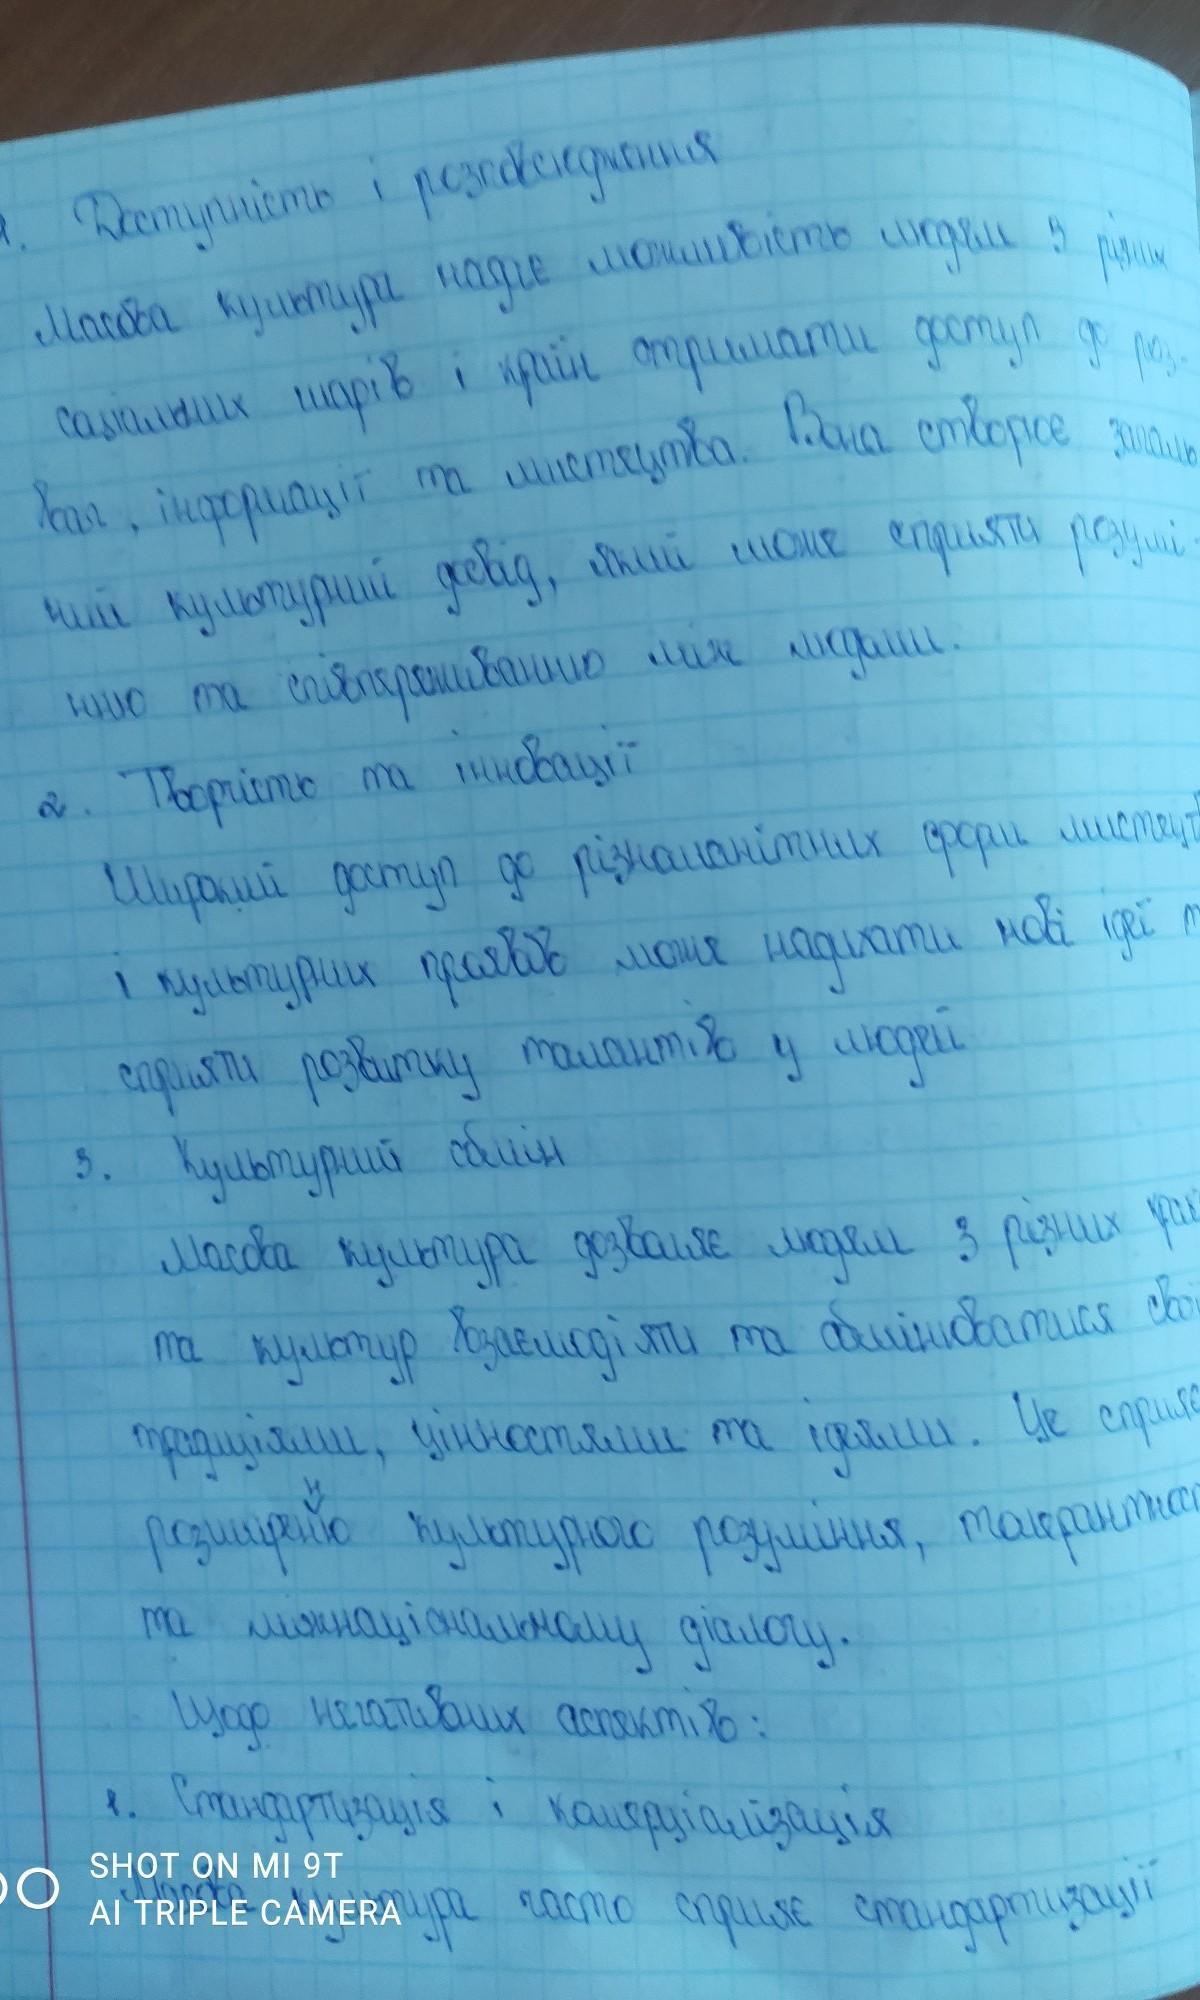 1. Доступність і розповсюдження
Масова культура надає можливість людям з різних
соціальних шарів і країн отримати доступ до роз-
ваг, інформації та мистецтва. Вона створює загаль
ний культурний досвід, який може сприяти розумі-
нню та співпереживанню між людьми.
2. Творчість та інновації
Широкий доступ до різноманітних форм мистецтв
і культурних проявів може надихати нові ідеї т
сприяти розвитку талантів у людей
3. Культурний обмін
Масова культура дозволяє людям з різних краї
та культур взаємодіяти та обмінюватися свої
традиціями, цінностями та ідеями. Це сприяє
розширенню культурного розуміння, толерантнос
та міжнаціональному діалогу.
Щодо негативних аспектів:
1. Стандартизація і комерціалізація
Масова культура часто сприяє стандартизації
SHOT ON MI 9T
AI TRIPLE CAMERA